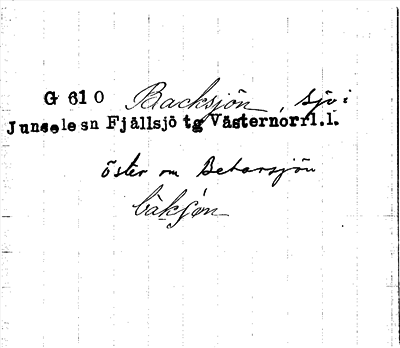 G 610 Backsjön, sjö:
Junselesn Fjällsjö tg Västernorrl.l.
öster om Betarsjön
bàksjön